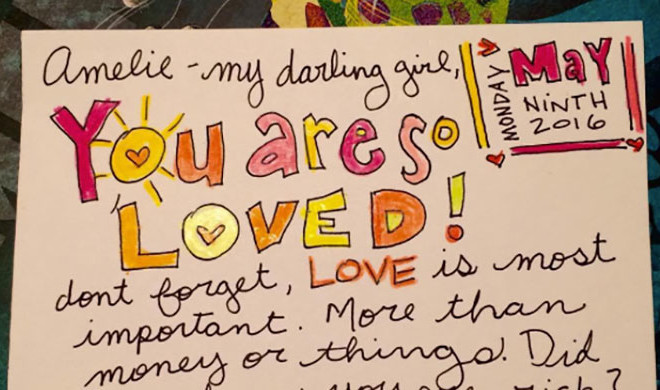 Amelie - my darling girl,
MONDAY
MaY
NiNTH
2016
You are so
LOVED!
dont forget, LOVE is most
important. More than
money or things! Did
you
rich?